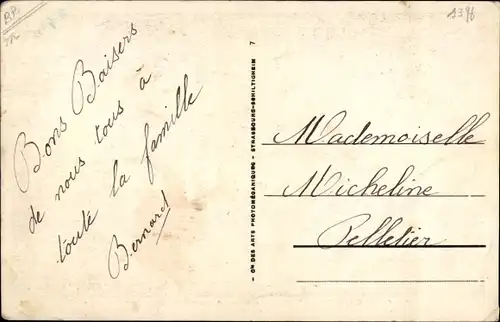 Bons Baisers
de nous tous à
toute la famille
Bernard
7
- Gde DES ARTS PHOTOMÉCANIQUES - STRASBOURG-SCHILTIGHEIM
Mademoiselle
Micheline
Pelletier